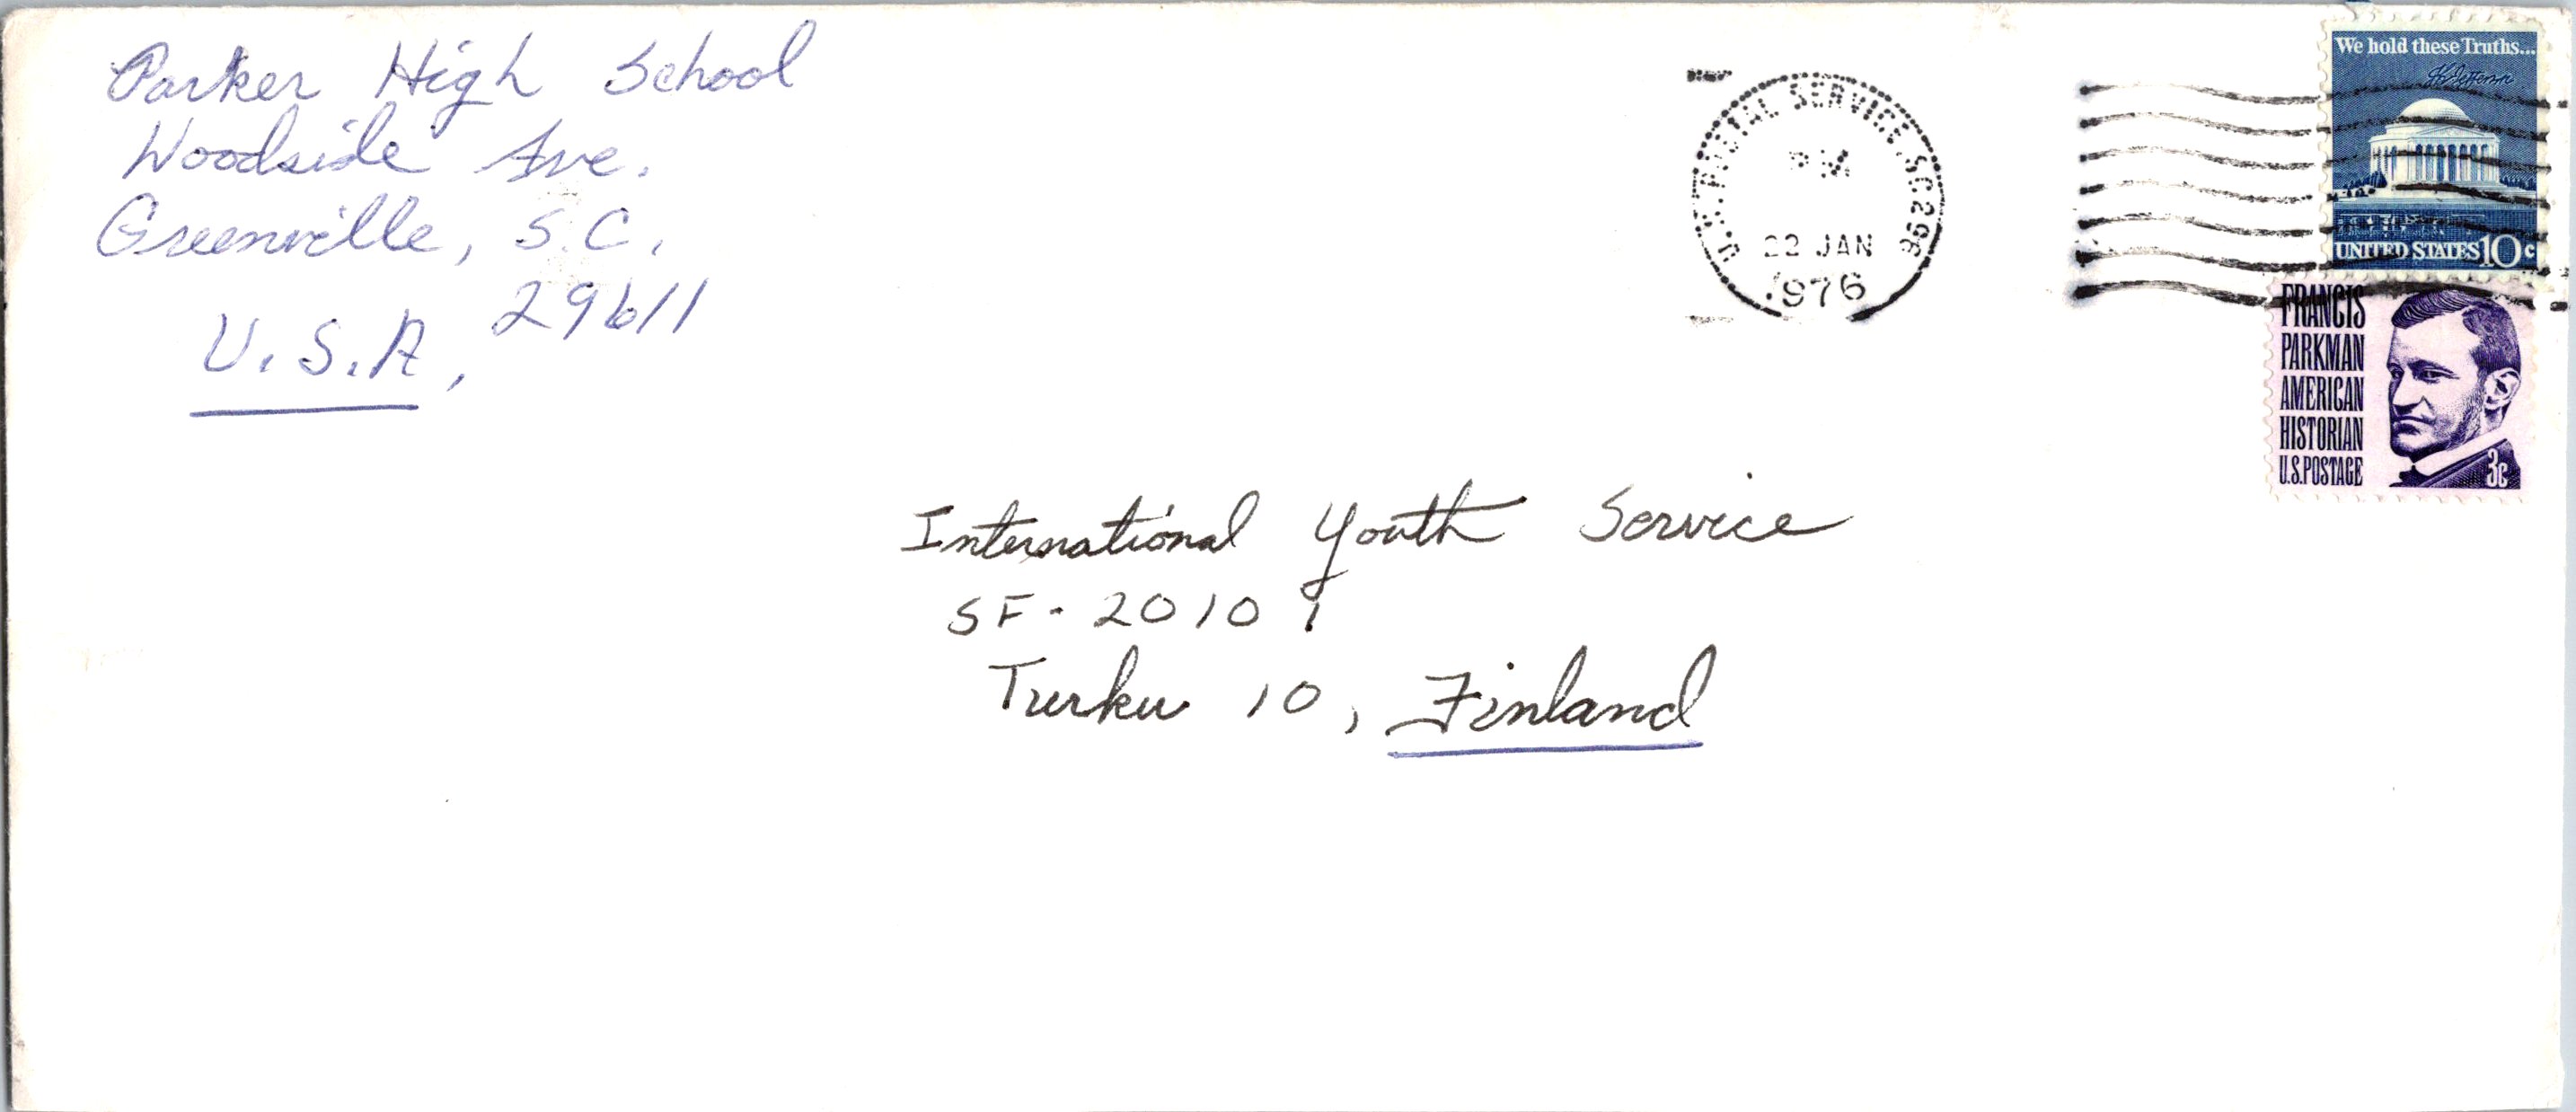 Parker High School
Woodside Ave.
Greenville, S.C.
29611
U.S.A.
U.S. POSTAL SERVICE. SC 296
PM
22 JAN
1976
We hold these Truths...
Th Jefferson
UNITED STATES 10c
FRANCIS
PARKMAN
AMERICAN
HISTORIAN
U.S. POSTAGE
3c
International Youth Service
SF - 20101
Turku 10, Finland